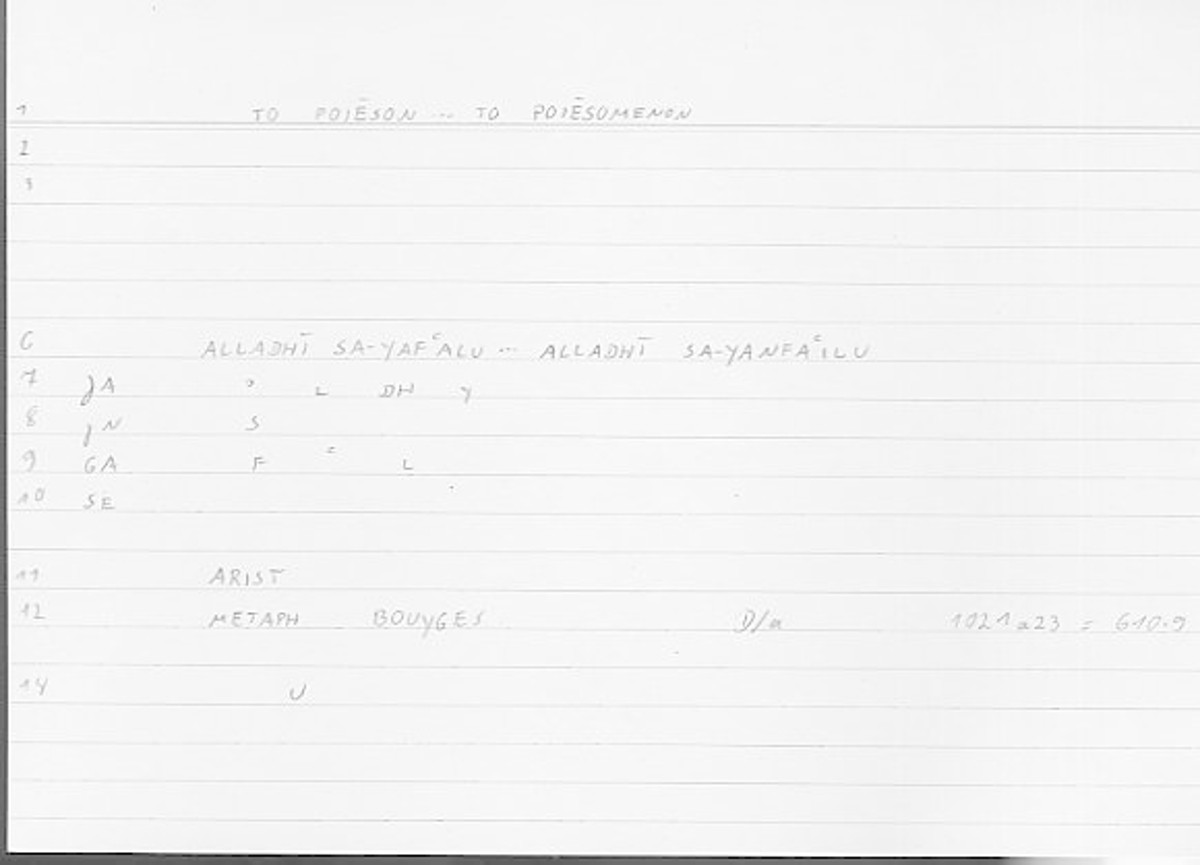 1 TO POIĒSON ... TO POIĒSOMENON
2
3
6 ALLADHĪ SA-YAFʿALU ... ALLADHĪ SA-YANFAʿILU
7 JA ʾ L DH Y
8 JN S
9 GA F ʿ L
10 SE
11 ARIST
12 METAPH BOUYGES D/a 1021a23 = 610.9
14 U